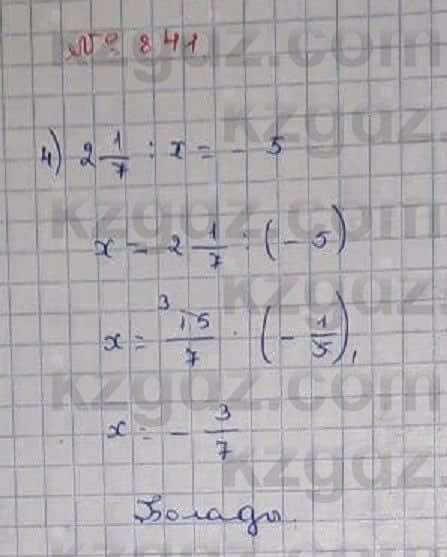 № 841
4) 2 1/7 : x = - 5
x = 2 1/7 : (- 5)
x = 15/7 · (- 1/5),
3
x = - 3/7
Болады.
kzgdz.com
kzgdz.com
kzgdz.com
kzgdz.com
kzgdz.com
kzgdz.com
kzgdz.com